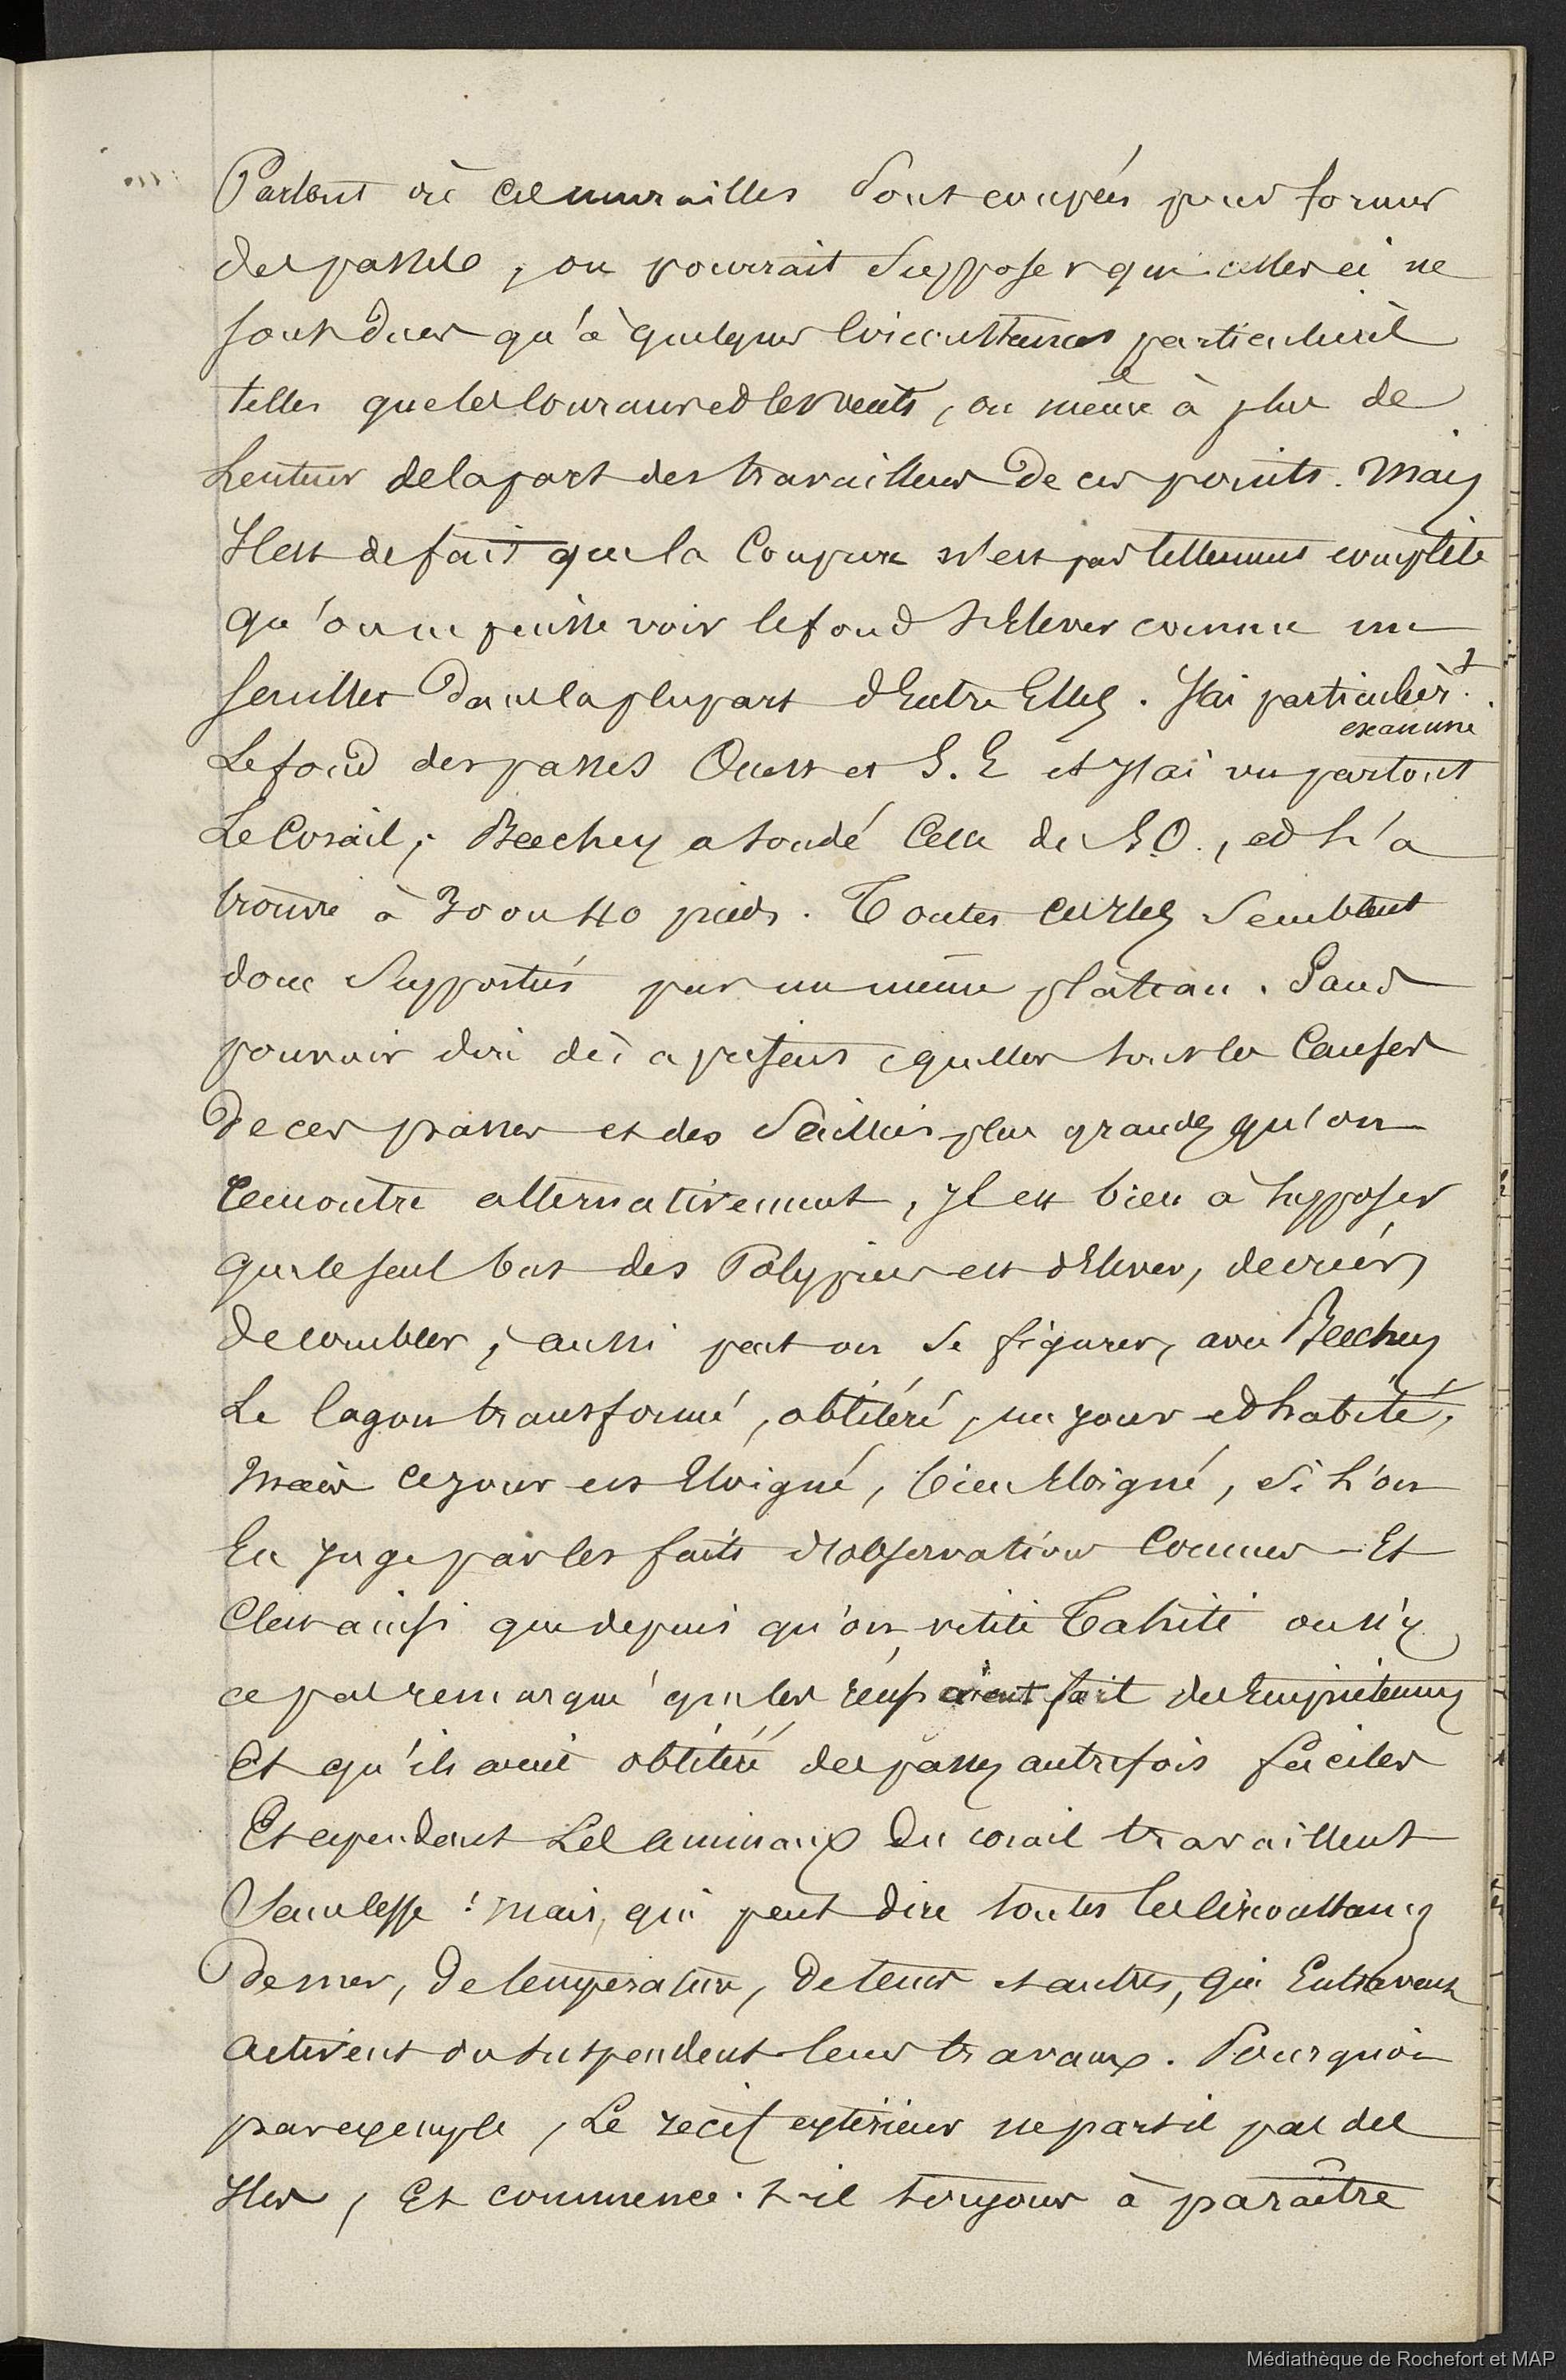 Partout où ces murailles sont coupées pour former
des passes, on pourrait supposer que celles ci ne
sont dues qu'à quelques circonstances particulières
telles que les courans et les vents, ou même à plus de
Lenteur de la part des travailleurs de ces points. Mais
Il est de fait que la Coupure n'est pas tellement complète
qu'on ne puisse voir le fond s'Elever comme un
seuillet dans la plupart d'Entre Elles. J'ai particulièrt.
examiné
Le fond des passes Ouest et S.E et j'ai vu partout
Le Corail; Beechey a sondé Celle du S.O., et l'a
trouvé à 30 ou 40 pieds. Toutes ces Iles semblent
donc supportées par un même plateau. Sans
pouvoir dire dès à présent quelles sont les Causes
De ces passes et des saillies plus grandes qu'on
rencontre alternativement, Il est bien à supposer
que le seul but des Polypiers est d'Elever, de créer,
de combler; aussi peut on se figurer, avec Beechey
Le lagon transformé, oblitéré, un jour et habité,
Mais ce jour est Eloigné, bien Eloigné, si l'on
En juge par les faits d'observation Connus — Et
C'est ainsi que depuis qu'on visite Tahiti on n'y
a pas remarqué que les récifs aient fait des Empiètemens
Et qu'ils aient oblitéré des passes autrefois faciles
Et cependant Les animaux du corail travaillent
Sans cesse! mais, qui peut dire toutes les circonstances
De mer, de température, de tems et autres, qui Entravent
activent ou suspendent leurs travaux. Pourquoi
par exemple, Le récif extérieur ne part-il pas des
Iles, Et commence-t-il toujours à paraître
Médiathèque de Rochefort et MAP